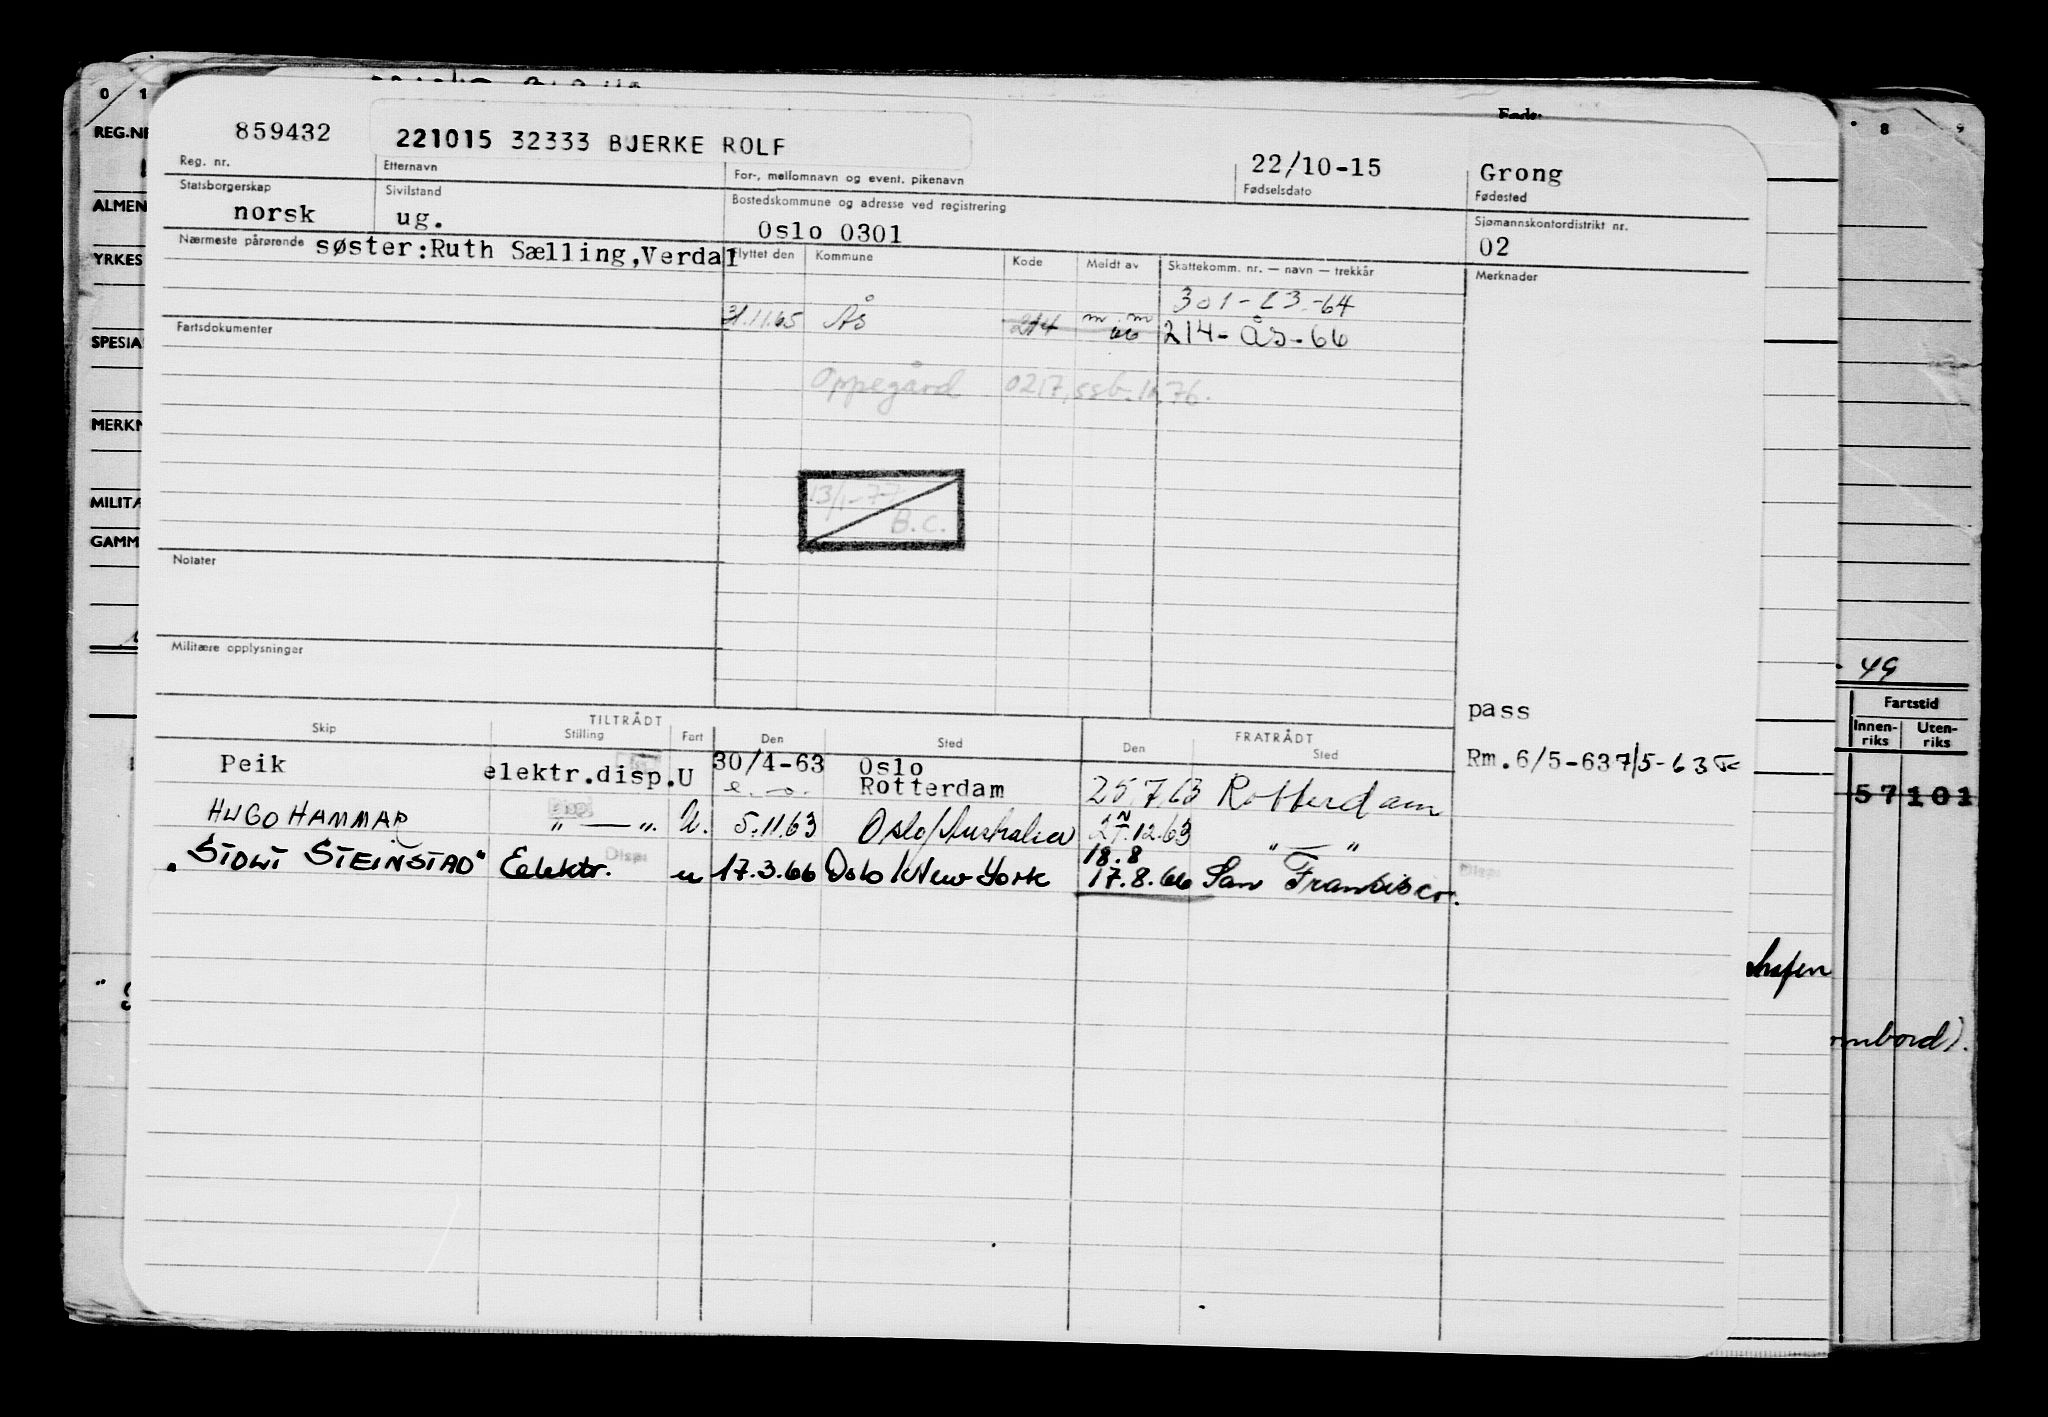 0 1
REG.NR
ALMEN
YRKES
SPESIA
MERKN
MILITÆ
GAMM
859432 221015 32333 BJERKE ROLF 22/10-15 Grong
Reg. nr. Etternavn For-, mellomnavn og event. pikenavn Fødselsdato Fødested
Statsborgerskap Sivilstand Bostedskommune og adresse ved registrering Sjømannskontordistrikt nr.
norsk ug. Oslo 0301 02
Nærmeste pårørende søster:Ruth Sælling,Verdal Flyttet den Kommune Kode Meldt av Skattekomm. nr. — navn — trekkår Merknader
301-63-64
31.11.65 Ås 214 m.m 66 214-ÅS-66
Fartsdokumenter
Oppegård 0217, ssb. 1.76.
13/1-77
B.C.
Notater
Militære opplysninger
pass
TILTRÅDT FRATRÅDT
Skip Stilling Fart Den Sted Den Sted
Peik elektr.disp.U 30/4-63 Oslo Rm.6/5-63 7/5-63
Rotterdam 25.7.63 Rotterdam
HUGO HAMMAR " — ". U. 5.11.63 Oslo/Australia 27.12.63 " — "
18.8
"SIDWI STEINSTAD" Elektr. Disp. u 17.3.66 Oslo/New York 17.8.66 San Fransisco. Disp.
8 9
49
Fartstid
Innen-riks Uten-riks
57 101